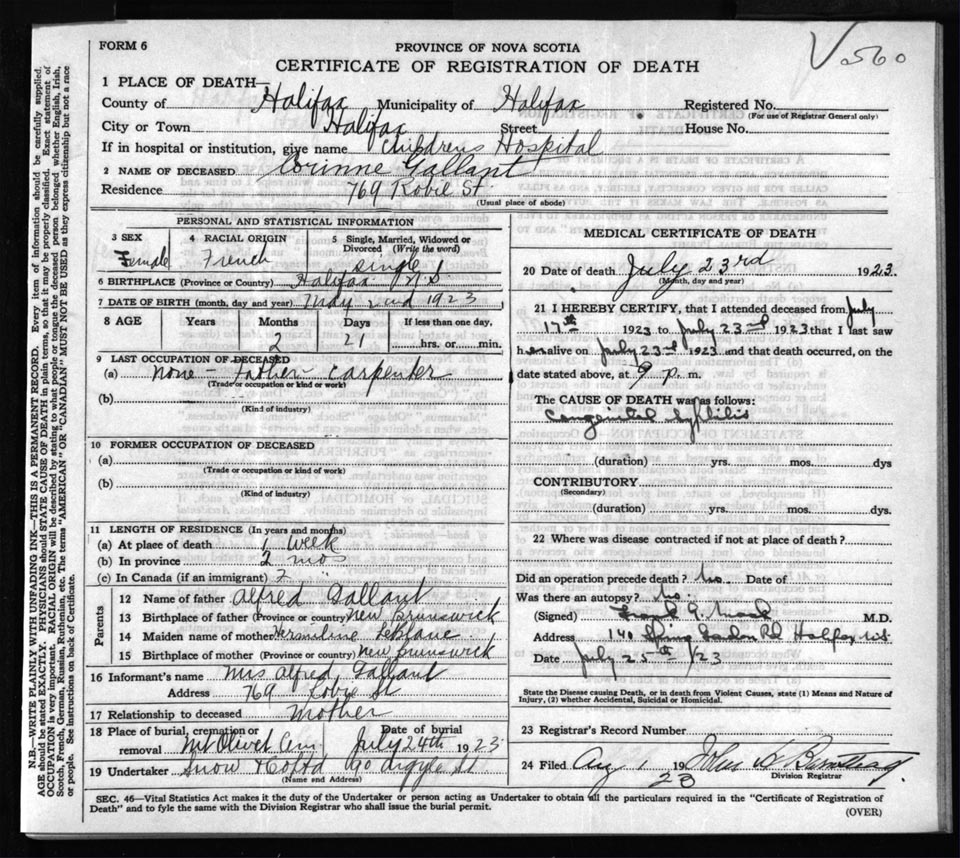 V 560
FORM 6
PROVINCE OF NOVA SCOTIA
CERTIFICATE OF REGISTRATION OF DEATH
1 PLACE OF DEATH—
County of Halifax Municipality of Halifax Registered No.
(For use of Registrar General only)
City or Town Halifax Street House No.
If in hospital or institution, give name Childrens Hospital
2 NAME OF DECEASED Corinne Gallant
Residence 769 Robie St.
(Usual place of abode)
PERSONAL AND STATISTICAL INFORMATION
3 SEX Female
4 RACIAL ORIGIN French
5 Single, Married, Widowed or Divorced (Write the word) Single
6 BIRTHPLACE (Province or Country) Halifax N S
7 DATE OF BIRTH (month, day and year) May 2nd 1923
8 AGE Years Months Days If less than one day,
2 21 hrs. or min.
9 LAST OCCUPATION OF DECEASED
(a) None - Father Carpenter
(Trade or occupation or kind or work)
(b)
(Kind of industry)
10 FORMER OCCUPATION OF DECEASED
(a)
(Trade or occupation or kind of work)
(b)
(Kind of industry)
11 LENGTH OF RESIDENCE (In years and months)
(a) At place of death 1 week
(b) In province 2 mos
(c) In Canada (if an immigrant)
Parents
12 Name of father Alfred Gallant
13 Birthplace of father (Province or country) New Brunswick
14 Maiden name of mother Hermiline LeBlanc
15 Birthplace of mother (Province or country) New Brunswick
16 Informant's name Mrs Alfred Gallant
Address 769 Robie St
17 Relationship to deceased Mother
18 Place of burial, cremation or removal Mt Olivet Cem Date of burial July 24th 1923
19 Undertaker Snow & Co Ltd 90 Argyle St.
(Name and Address)
MEDICAL CERTIFICATE OF DEATH
20 Date of death July 23rd 1923.
(Month, day and year)
21 I HEREBY CERTIFY, that I attended deceased from July
17th 1923 to July 23rd 1923 that I last saw
her alive on July 23rd 1923 and that death occurred, on the
date stated above, at 9 P. m.
The CAUSE OF DEATH was as follows:
Congenital syphilis
(duration) yrs. mos. dys
CONTRIBUTORY
(Secondary)
(duration) yrs. mos. dys
22 Where was disease contracted if not at place of death?
Did an operation precede death? No. Date of
Was there an autopsy? No.
(Signed) Frank G. Mack M.D.
Address 140 Spring Garden Rd Halifax N.S.
Date July 25th /23
State the Disease causing Death, or in death from Violent Causes, state (1) Means and Nature of
Injury, (2) whether Accidental, Suicidal or Homicidal.
23 Registrar's Record Number
24 Filed Aug 1 1923 John
Division Registrar
SEC. 46—Vital Statistics Act makes it the duty of the Undertaker or person acting as Undertaker to obtain all the particulars required in the "Certificate of Registration of
Death" and to fyle the same with the Division Registrar who shall issue the burial permit.
(OVER)
N.B.—WRITE PLAINLY WITH UNFADING INK—THIS IS A PERMANENT RECORD. Every item of information should be carefully supplied.
AGE should be stated EXACTLY. PHYSICIANS should STATE CAUSE OF DEATH in plain terms, so that it may be properly classified. Exact statement of
OCCUPATION is very important. RACIAL ORIGIN will be described by stating to what people or tongue the deceased person belonged whether English, Irish,
Scotch, French, German, Russian, Ruthenian, etc. The terms "AMERICAN" OR "CANADIAN" MUST NOT BE USED as they express citizenship but not a race
or people. See instructions on back of Certificate.